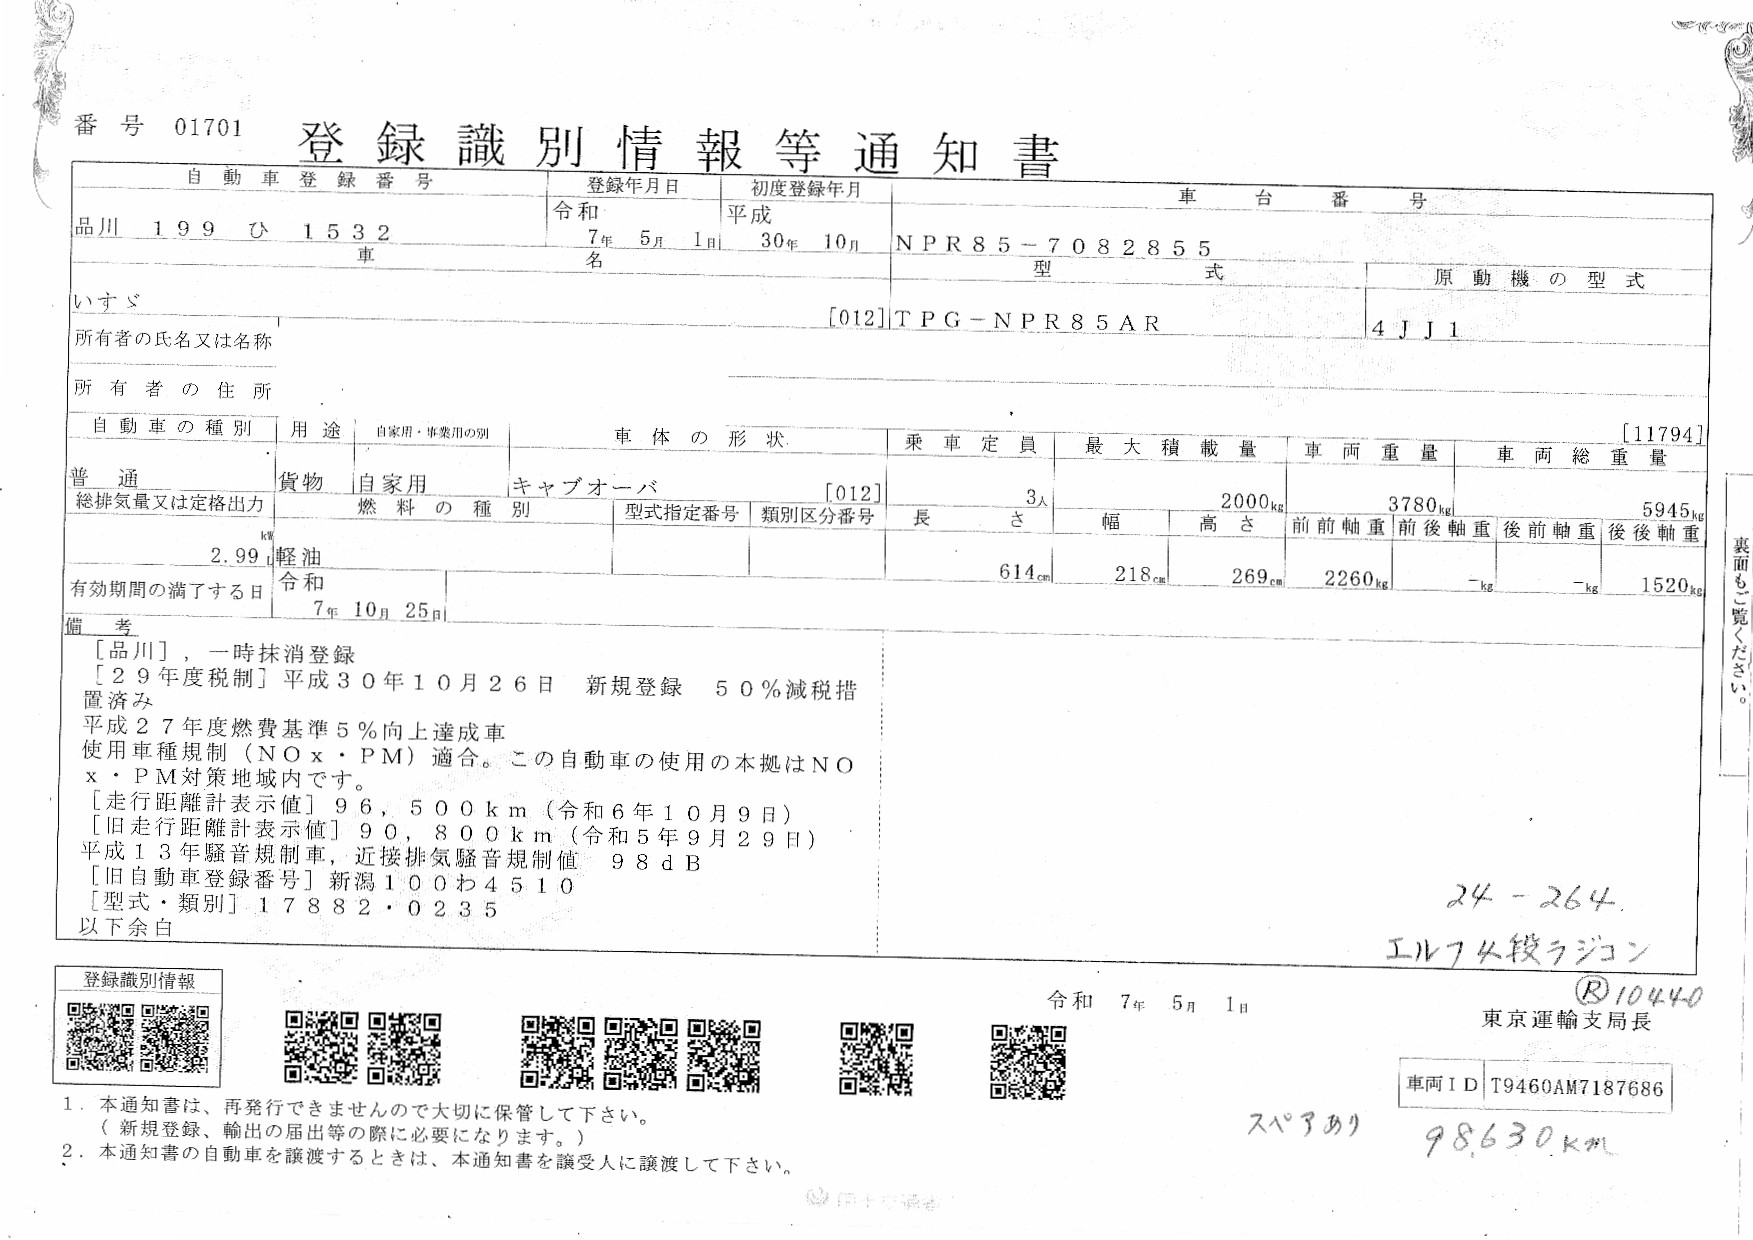 番号 01701
登録識別情報等通知書
自動車登録番号 登録年月日 初度登録年月 車台番号
品川 199 ひ 1532 令和 7年 5月 1日 平成 30年 10月 NPR85-7082855
車名 型式 原動機の型式
いすゞ [012] TPG-NPR85AR 4JJ1
所有者の氏名又は名称
所有者の住所
[11794]
自動車の種別 用途 自家用・事業用の別 車体の形状 乗車定員 最大積載量 車両重量 車両総重量
普通 貨物 自家用 キャブオーバ [012] 3人 2000kg 3780kg 5945kg
総排気量又は定格出力 燃料の種別 型式指定番号 類別区分番号 長さ 幅 高さ 前前軸重 前後軸重 後前軸重 後後軸重
kW
2.99 L 軽油 614cm 218cm 269cm 2260kg -kg -kg 1520kg
有効期間の満了する日 令和 7年 10月 25日
備考
[品川],一時抹消登録
[29年度税制]平成30年10月26日 新規登録 50%減税措
置済み
平成27年度燃費基準5%向上達成車
使用車種規制(NOx・PM)適合。この自動車の使用の本拠はNO
x・PM対策地域内です。
[走行距離計表示値]96,500km(令和6年10月9日)
[旧走行距離計表示値]90,800km(令和5年9月29日)
平成13年騒音規制車,近接排気騒音規制値 98dB
[旧自動車登録番号]新潟100わ4510
[型式・類別]17882・0235
以下余白
24-264.
エルフ4段ラジコン
Ⓡ10440
裏面もご覧ください。
登録識別情報
令和 7年 5月 1日
東京運輸支局長
車両ID T9460AM7187686
スペアあり 98,630km
1.本通知書は、再発行できませんので大切に保管して下さい。
(新規登録、輸出の届出等の際に必要になります。)
2.本通知書の自動車を譲渡するときは、本通知書を譲受人に譲渡して下さい。